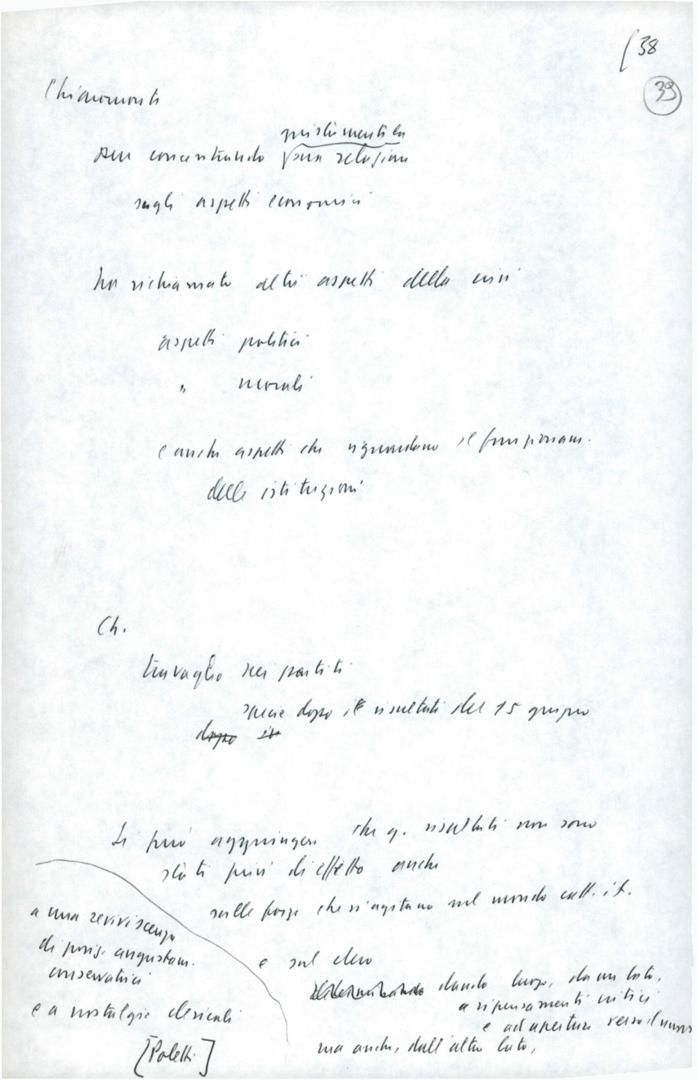 38
39
Chiaromonte
pur concentrando giustamente la sua relazione
sugli aspetti economici
ha richiamato altri aspetti della crisi
aspetti politici
" morali
e anche aspetti che riguardano il funzionam.
delle istituzioni
Ch.
travaglio nei partiti
specie dopo i risultati del 15 giugno
dopo il
Si può aggiungere che q. risultati non sono
stati privi di effetto anche
sulle forze che si agitano nel mondo catt. it.
e sul clero
dando luogo, da un lato,
a ripensamenti critici
e ad aperture verso il nuovo
ma anche, dall'altro lato,
a una reviviscenza
di posiz. angustam.
conservatrici
e a nostalgie clericali
[Poletti]